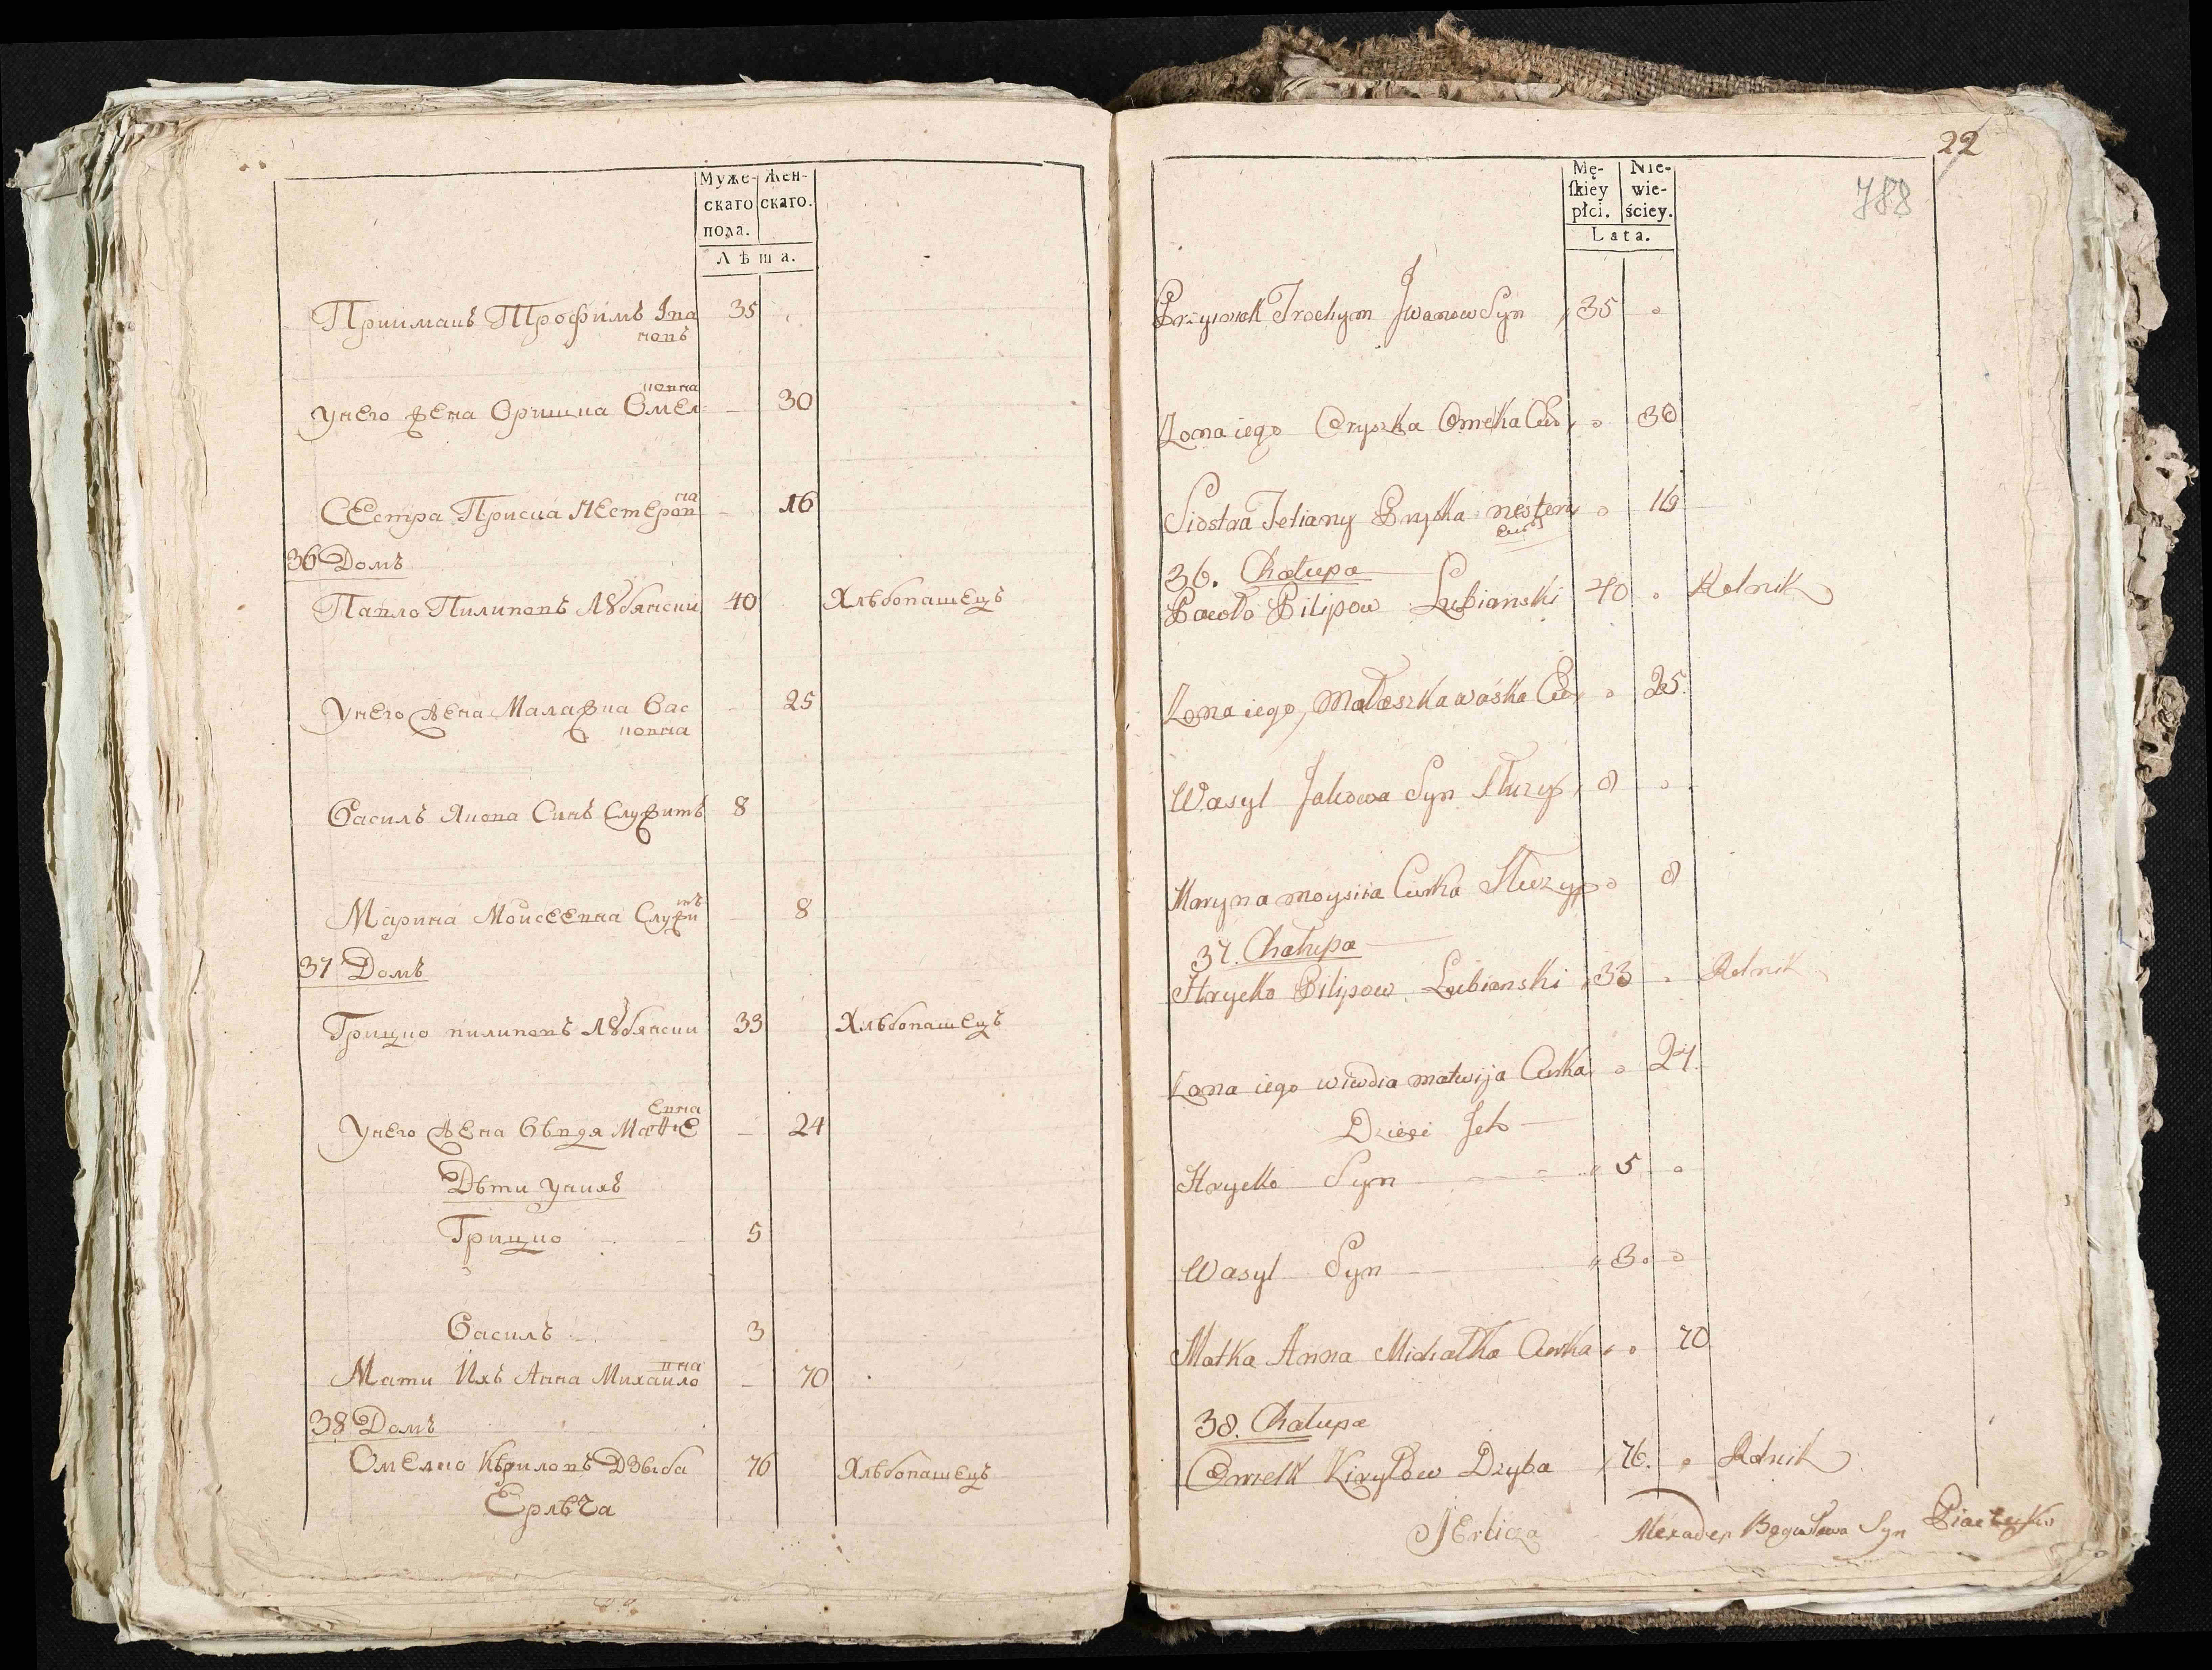 Муже- Жен-
скаго скаго.
пола.
Лѣта.
Приимакъ Трофимъ Iва
новъ 35
унего жена Оришка Омел
ковна 30
Сестра Приска Нестеров
на 16
36 Домъ
Павло Пилиповъ Лꙋбянски 40 Хлѣбопашецъ
Унего жена Малашка Вас
ковна 25
Василь Якова Синъ Служитъ 8
Марина Моисеевна Служи
тъ 8
37 Домъ
Грицко пилиповъ Лꙋбянски 33 Хлѣбопашецъ
Унего жена Вѣвдя Матве
евна 24
Дѣти унихъ
Грицко 5
Василь 3
Мати Ихъ Анна Михайло
вна 70
38 Домъ
Омелко Кѣриловъ Дзыба 76 Хлѣбопашецъ
Ерлѣча
22
788
Mę- Nie-
skiey wie-
płci. ściey.
Lata.
Przyimak Trochym Jwanow Syn 35
Zona iego Oryszka Omelka Cur 30
Siostra Tetiany Pryska nestera
Cur 16
36. Chałupa
Pawło Pilipow Lubianski 40 Rolnik
Zona iego, Małaszka waśka Cur 25.
Wasyl Jakowa Syn Służy 8
Maryna moysija Curka Służy 8
37. Chałupa
Hryćko Pilipow Lubianski 33 Rolnik
Zona iego wiwdia matwija Curka 24.
Dzieci Jch
Hryćko Syn 5
Wasyl Syn 3
Matka Anna Michałka Curka 70
38. Chałupa
Omelk Kiryłow Dzyba 76. Rolnik
JErlicza Alexader Bogusława Syn